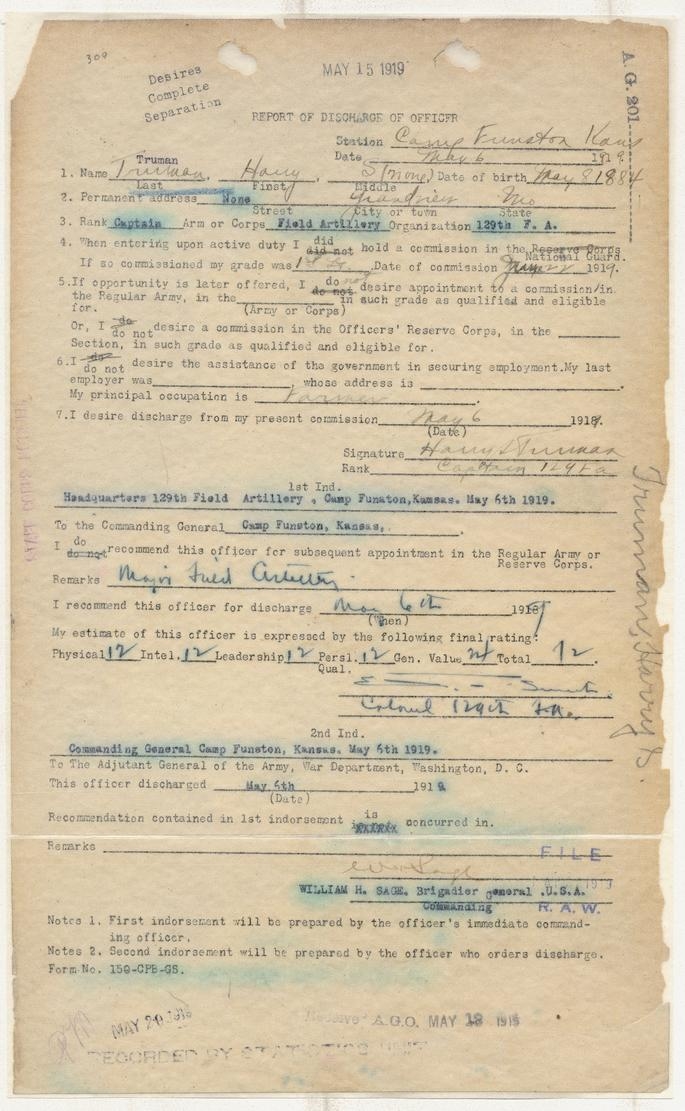 309
MAY 15 1919
Desires
Complete
Separation
A.G. 201
REPORT OF DISCHARGE OF OFFICER
Station Camp Funston Kans
Date May 6 1919.
Truman
1. Name Truman, Harry, S (none) Date of birth May 8 1884
Last First Middle
2. Permanent address None Grandview Mo
Street City or town State
3. Rank Captain Arm or Corps Field Artillery Organization 129th F. A.
4. When entering upon active duty I did did not hold a commission in the Reserve Corps
National Guard.
If so commissioned my grade was 1st Lt. Date of commission 22 1919.
5. If opportunity is later offered, I do not do not desire appointment to a commission/in
the Regular Army, in the in such grade as qualified and eligible
for. (Army or Corps)
Or, I do do not desire a commission in the Officers' Reserve Corps, in the
Section, in such grade as qualified and eligible for.
6. I do do not desire the assistance of the government in securing employment. My last
employer was , whose address is .
My principal occupation is Farmer
7. I desire discharge from my present commission May 6 1919.
(Date)
Signature Harry S Truman
Rank Captain 129 FA
1st Ind.
Headquarters 129th Field Artillery , Camp Funston, Kansas. May 6th 1919.
To the Commanding General Camp Funston, Kansas, .
I do do not recommend this officer for subsequent appointment in the Regular Army or
Reserve Corps.
Remarks Major Field Artillery.
I recommend this officer for discharge May 6th 1919
(When)
My estimate of this officer is expressed by the following final rating:
Physical 12 Intel. 12 Leadership 12 Persl. 12 Gen. Value 24 Total 72.
Qual.
Colonel 129th F.A.
2nd Ind.
Commanding General Camp Funston, Kansas. May 6th 1919.
To The Adjutant General of the Army, War Department, Washington, D. C.
This officer discharged May 6th 1919
(Date)
Recommendation contained in 1st indorsement is concurred in.
Remarks
FILE
Wm Sage
WILLIAM H. SAGE. Brigadier General .U.S.A.
Commanding R. A. W.
Notes 1. First indorsement will be prepared by the officer's immediate command-
ing officer.
Notes 2. Second indorsement will be prepared by the officer who orders discharge.
Form No. 150-CPB-GS.
MAY 20 1919
Received A.G.O. MAY 18 1919
RECORDED BY STATISTICS UNIT
Truman, Harry S.